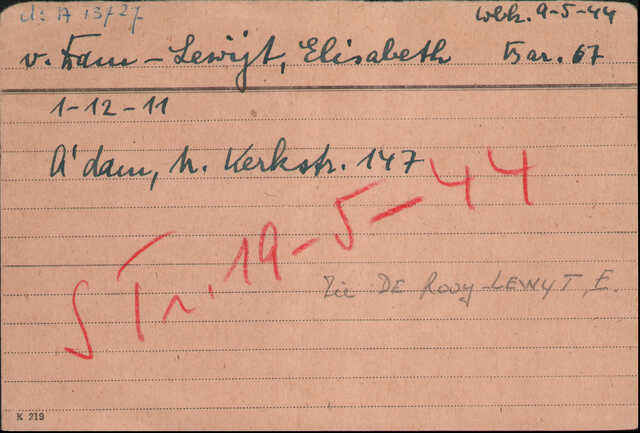 d: A 13727
wbk. 9-5-44
v. Dam - Lewijt, Elisabeth Bar. 67
1-12-11
A'dam, N. Kerkstr. 147
S Tr. 19-5-44
Zie DE Rooy-LEWYT, E.
K 219